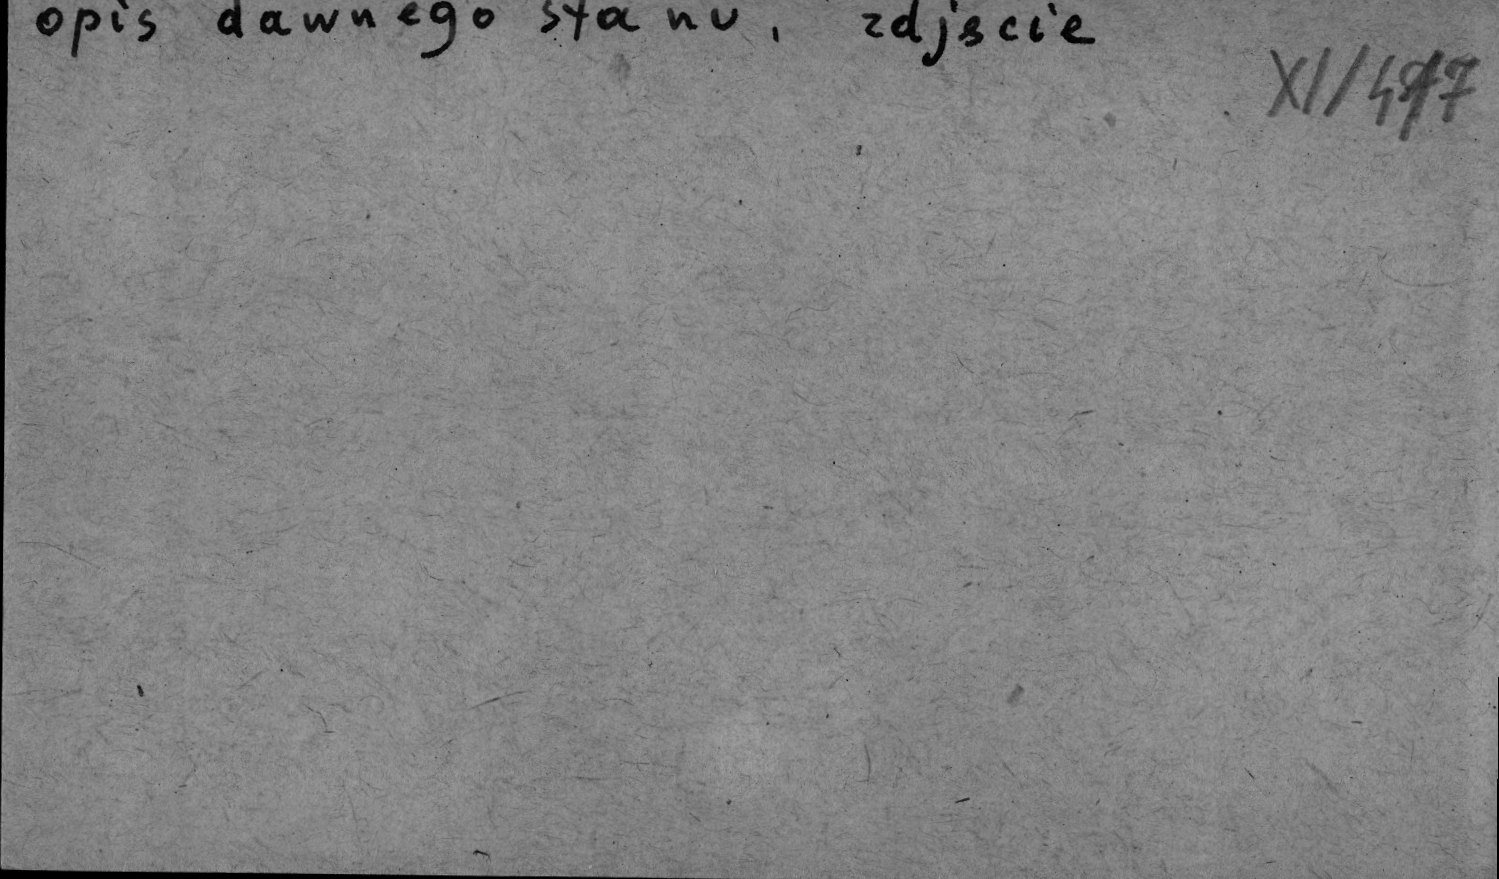 opis dawnego stanu, zdjscie
XI/